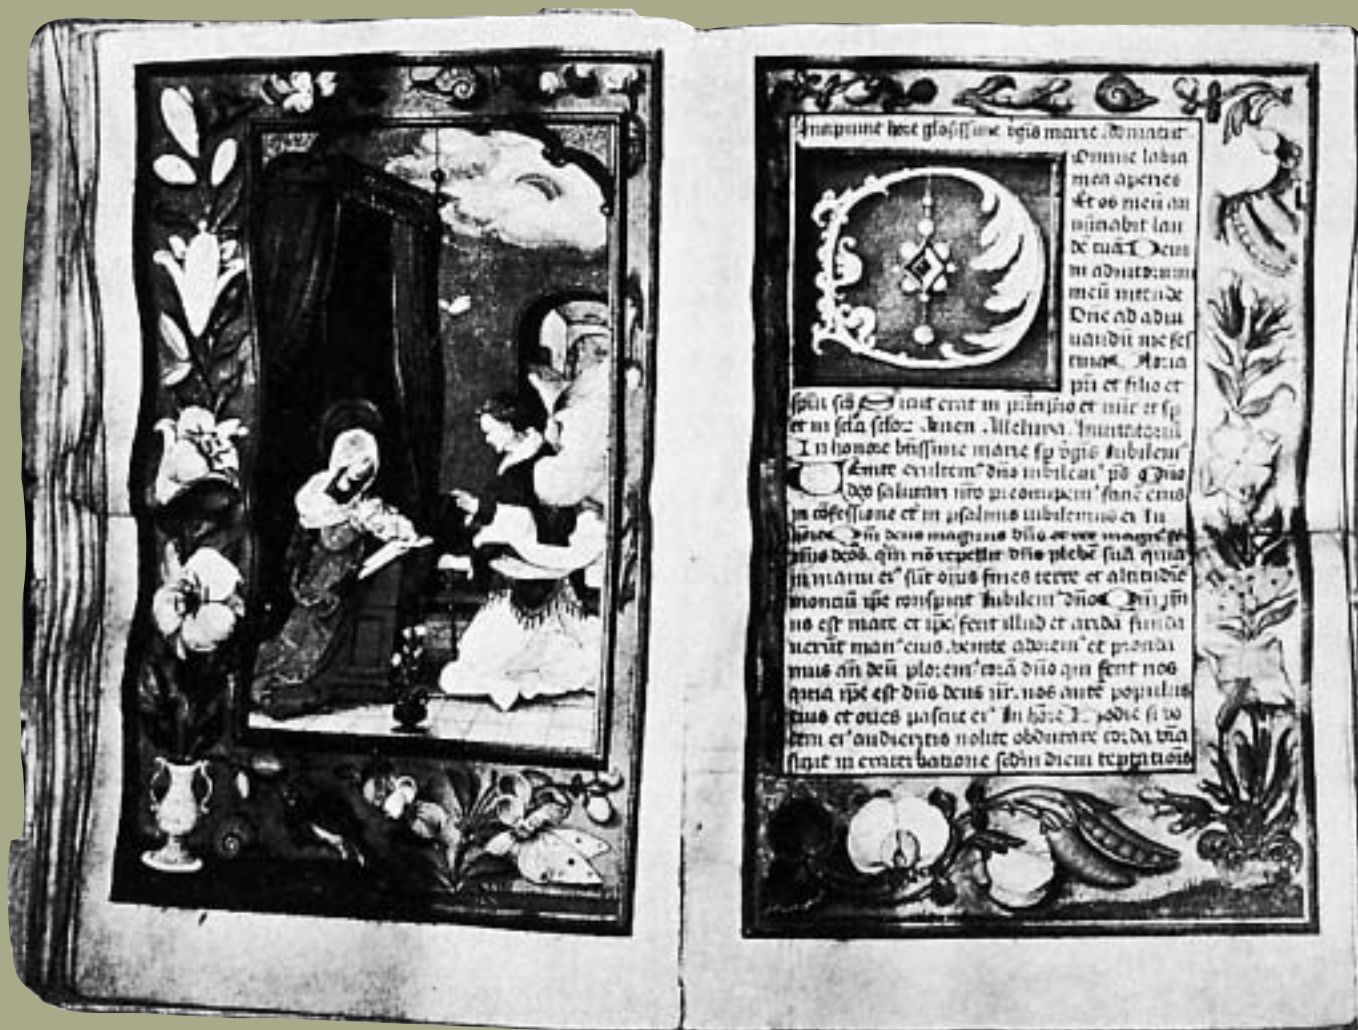 Incipiunt hore gl'osissime v'gis marie. Ad matut'.
Domine labia
mea aperies
Et os meū an
nūnciabit lau
dē tuā Deus
in adiutorium
meū intende
Dn̄e ad adiu
uandū me fes
tina. Gloria
pr̄i et filio et
sp̄ui sc̄o Sicut erat in prīcipio et nūc et sp̄
et in sc̄la sc̄lorꝫ Amen. Alleluya. Inuitatoriū
In honore bt̄issime marie sp̄ v'gis Iubilem'
Uenite exultem' dn̄o iubilem'
deo salutari nr̄o preocupem' faciē eius
in cōfessione et in psalmis iubilemus ei In
honore Qm̄ deus magnus dn̄s et rex magn'
om̄s deos. qm̄ nō repellet dn̄s plebē suā quia
in manu ei' sūt om̄s fines terre et altitudīe
monciū ip̄e conspicit Iubilem' dn̄o Qm̄ ip̄i
us est mare et ip̄e fecit illud et aridā funda
uerūt man' eius. venite adorem' et procida
mus añ deū plorem' corā dn̄o qui fecit nos
quia ip̄e est dn̄s deus nr̄. nos autē populus
eius et oues pascue ei' In hōre Hodie si vo
cem ei' audieritis nolite obdurare corda vr̄a
sicut in exacerbatione sc̄dm diem teptationis